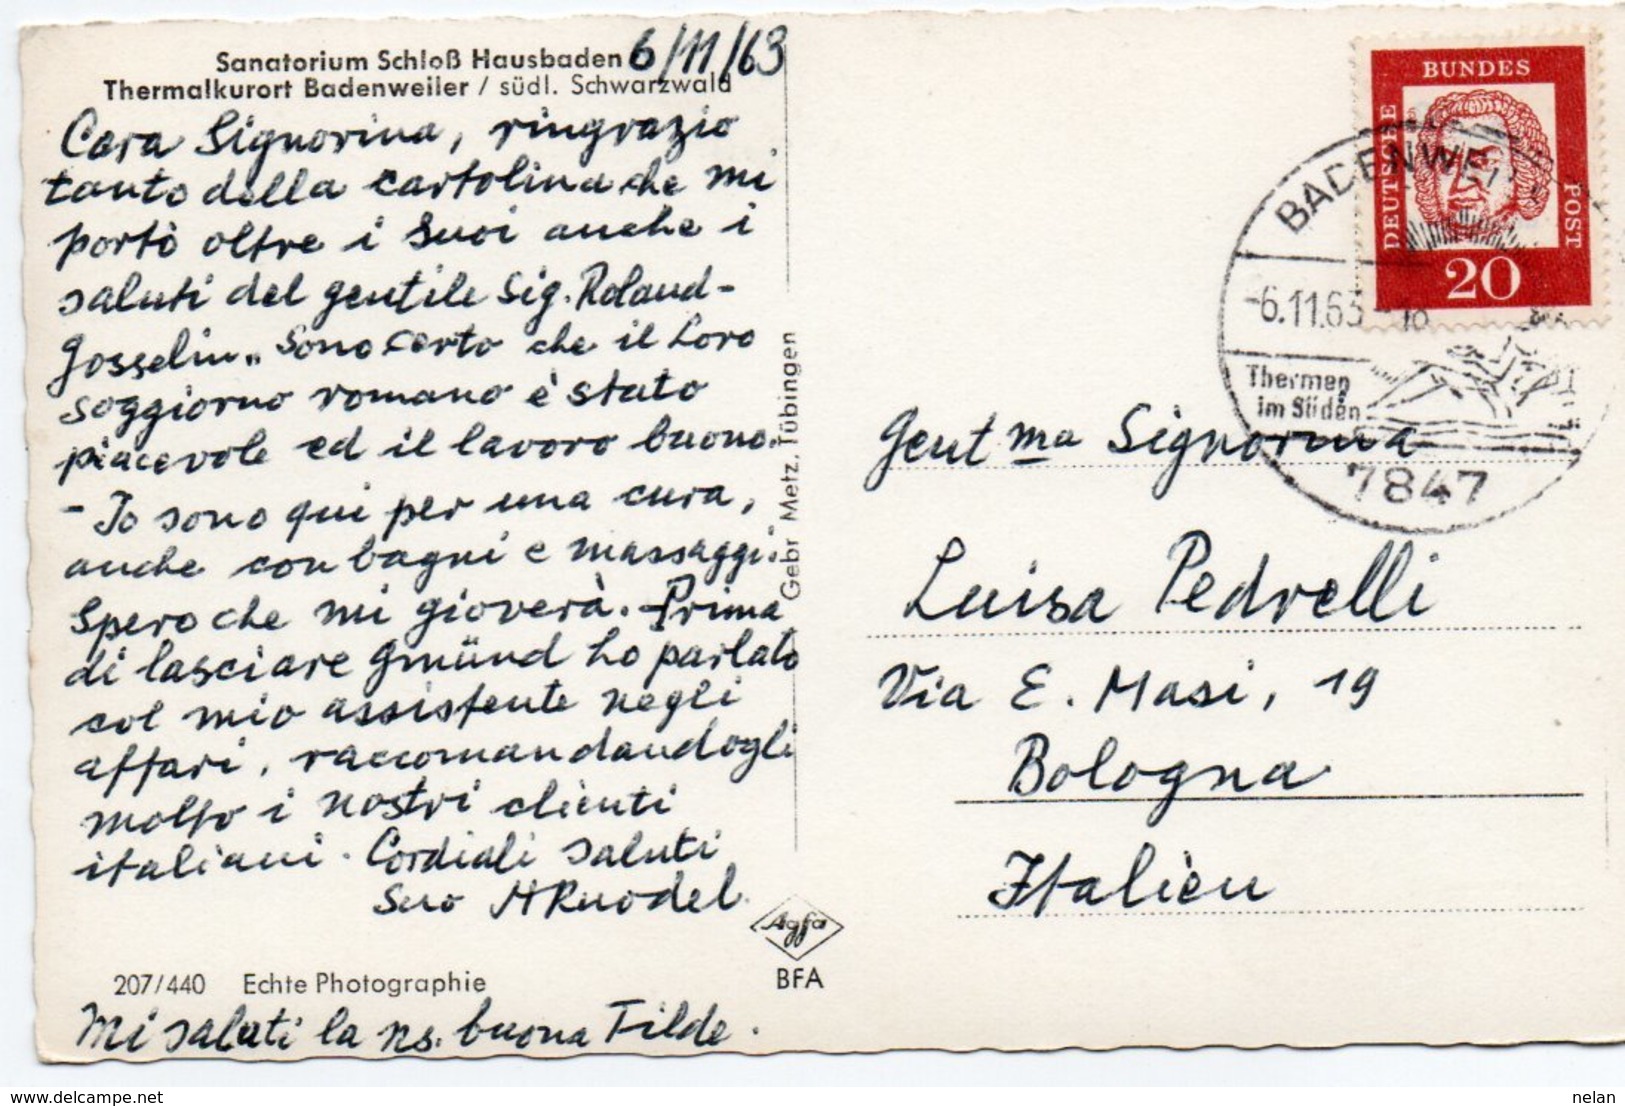 Sanatorium Schloß Hausbaden 6/11/63
Thermalkurort Badenweiler / südl. Schwarzwald
Cara Signorina, ringrazio
tanto della cartolina che mi
portò oltre i Suoi anche i
saluti del gentile Sig. Roland-
Gosselin„ Sono certo che il Loro
soggiorno romano è stato
piacevole ed il lavoro buono.
- Io sono qui per una cura,
anche con bagni e massaggi.
Spero che mi gioverà. - Prima
di lasciare Gmünd ho parlato
col mio assistente negli
affari, raccomandandogli
molto i nostri clienti
italiani. Cordiali saluti
Suo HRuodel.
207/440 Echte Photographie
Mi saluti la ns. buona Tilde.
Gebr Metz, Tübingen
Agfa
BFA
BUNDES
DEUTSCHE
POST
20
BADENWEI
-6.11.63-18
Thermen
im Süden
7847
Gent ma Signorina
Luisa Pedrelli
Via E. Masi, 19
Bologna
Italien
delcampe.net
nelan